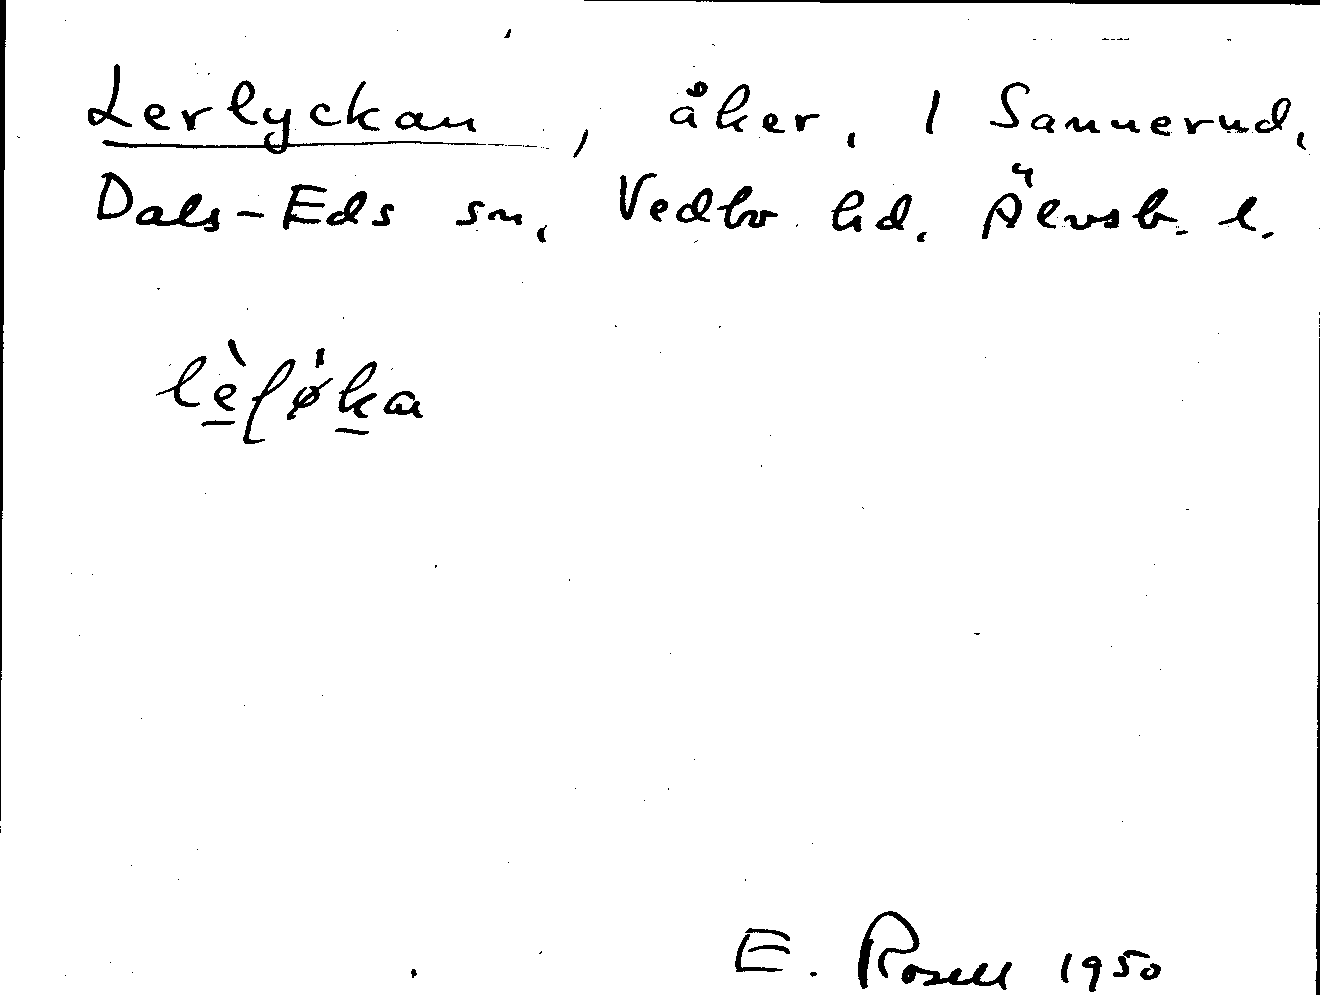 Lerlyckan, åker, 1 Sannerud,
Dals-Eds sn, Vedbo hd. Älvsb. l.
lèløka
E. Rosell 1950